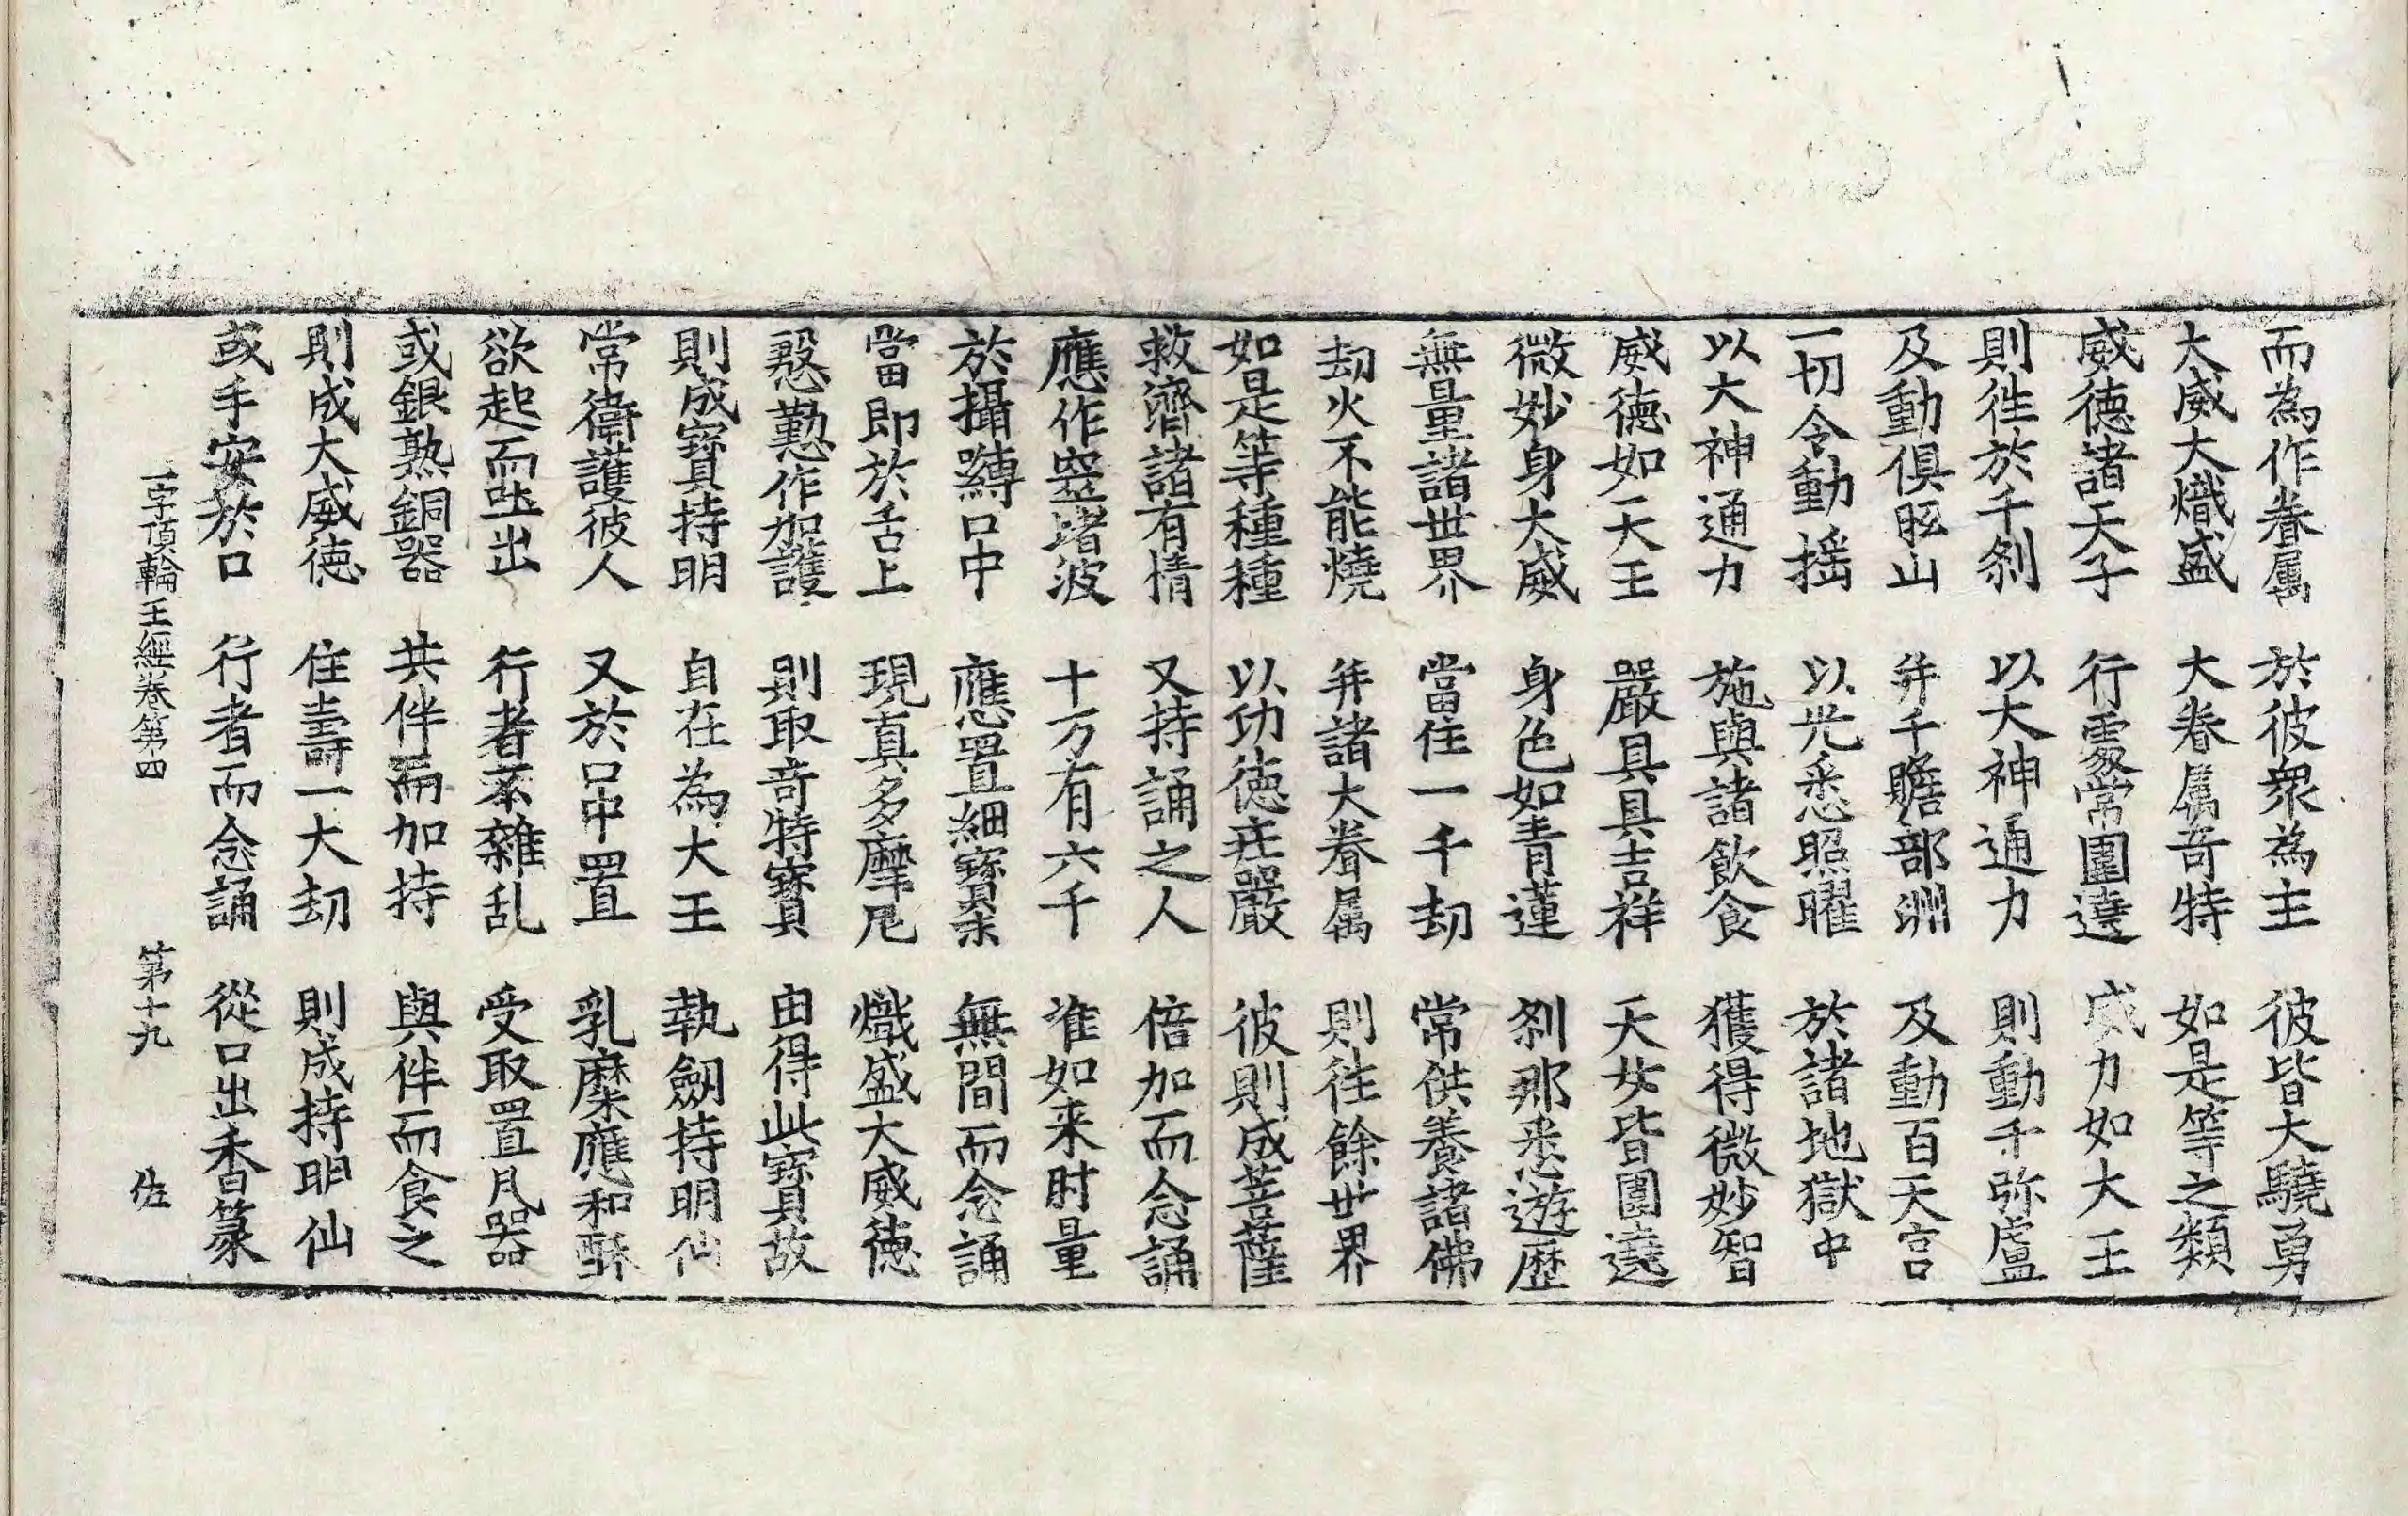 而為作眷属 於彼衆為主 彼皆大驍勇
大威大熾盛 大眷属竒特 如是等之類
威德諸天子 行處常圍遶 威力如大王
則徃於千刹 以大神通力 則動千弥盧
及動俱胝山 并千贍部洲 及動百天宫
一切令動揺 以光悉照曜 於諸地獄中
以大神通力 施與諸飲食 獲得微妙智
威德如天王 嚴具具吉祥 天女皆圍遶
微妙身大威 身色如青蓮 刹那悉遊歷
無量諸世界 當住一千劫 常供養諸佛
劫火不能燒 并諸大眷属 則徃餘世界
如是等種種 以功徳莊嚴 彼則成菩薩
救濟諸有情 又持誦之人 倍加而念誦
應作窣堵波 十万有六千 准如来肘量
於攝嚩口中 應置細寶栗 無間而念誦
當即於舌上 現真多摩尼 熾盛大威德
慇懃作加護 則取竒特寶 由得此寶故
則成寳持明 自在為大王 執劔持明仙
常衛護彼人 又於口中置 乳糜應和酥
欲起而坐出 行者不雜乱 受取置凡器
或銀熟銅器 共伴而加持 與伴而食之
則成大威德 住壽一大劫 則成持明仙
或手安於口 行者而念誦 從口出香篆
一字頂輪王經卷第四 第十九 佐